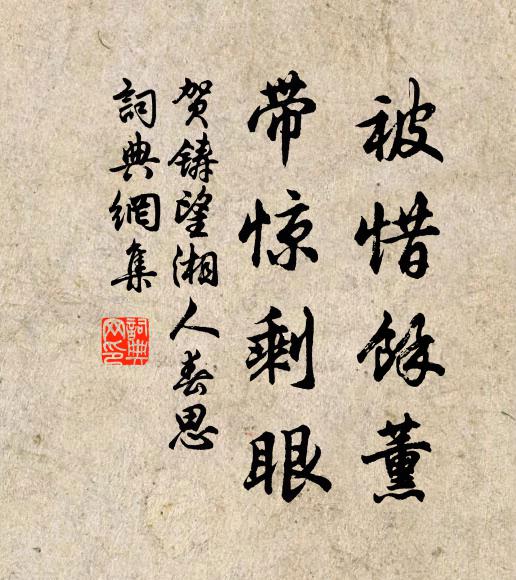 被惜馀薰
带惊剩眼
贺铸望湘人春思
詞典網集
詞典网印